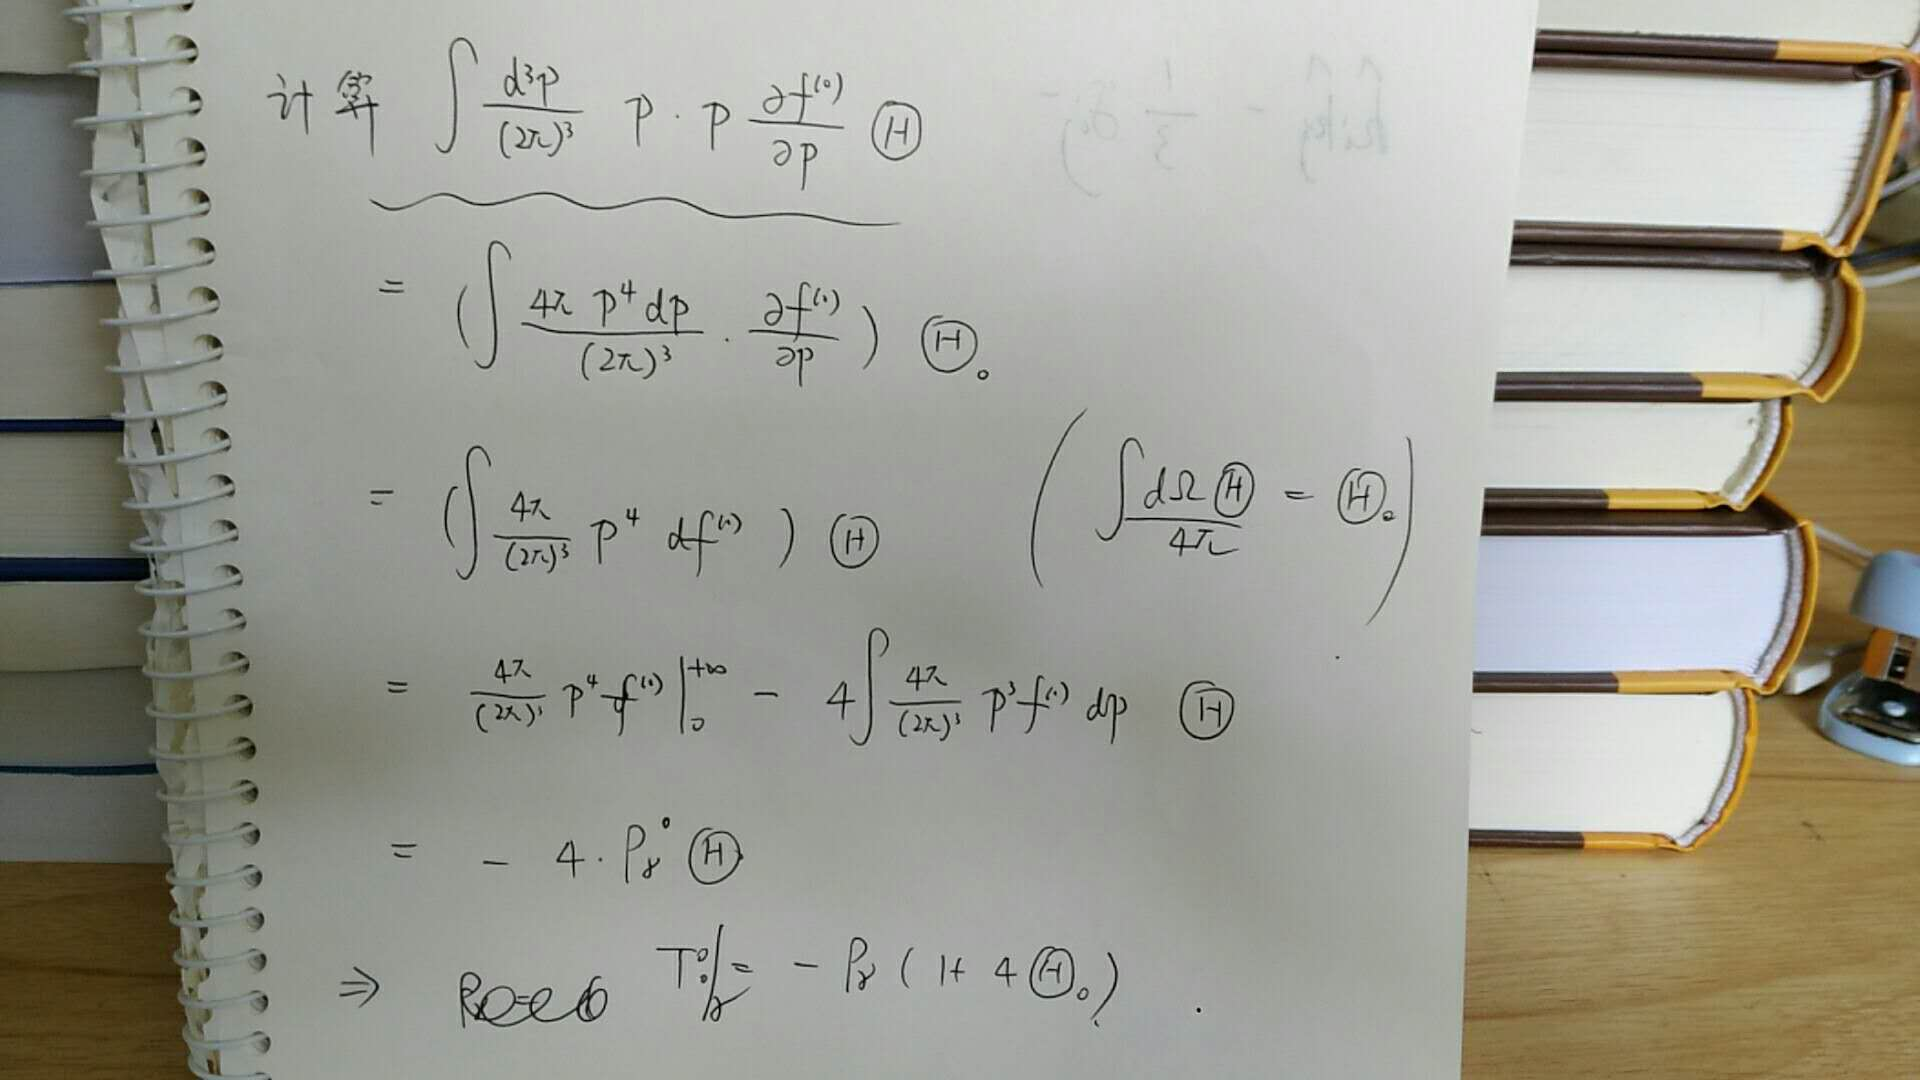 计算 ∫ d³p/(2π)³ p · p ∂f⁽⁰⁾/∂p Ⓗ
= (∫ 4π p⁴ dp/(2π)³ · ∂f⁽⁰⁾/∂p) Ⓗ₀
= (∫ 4π/(2π)³ p⁴ df⁽⁰⁾) Ⓗ (∫ dΩ Ⓗ/4π = Ⓗ₀)
= 4π/(2π)³ p⁴ f⁽⁰⁾ |₀^{+∞} − 4 ∫ 4π/(2π)³ p³ f⁽⁰⁾ dp Ⓗ
= − 4 · ρ_γ° Ⓗ
⇒ T⁰₀|_γ = − ρ_γ (1 + 4 Ⓗ₀) .